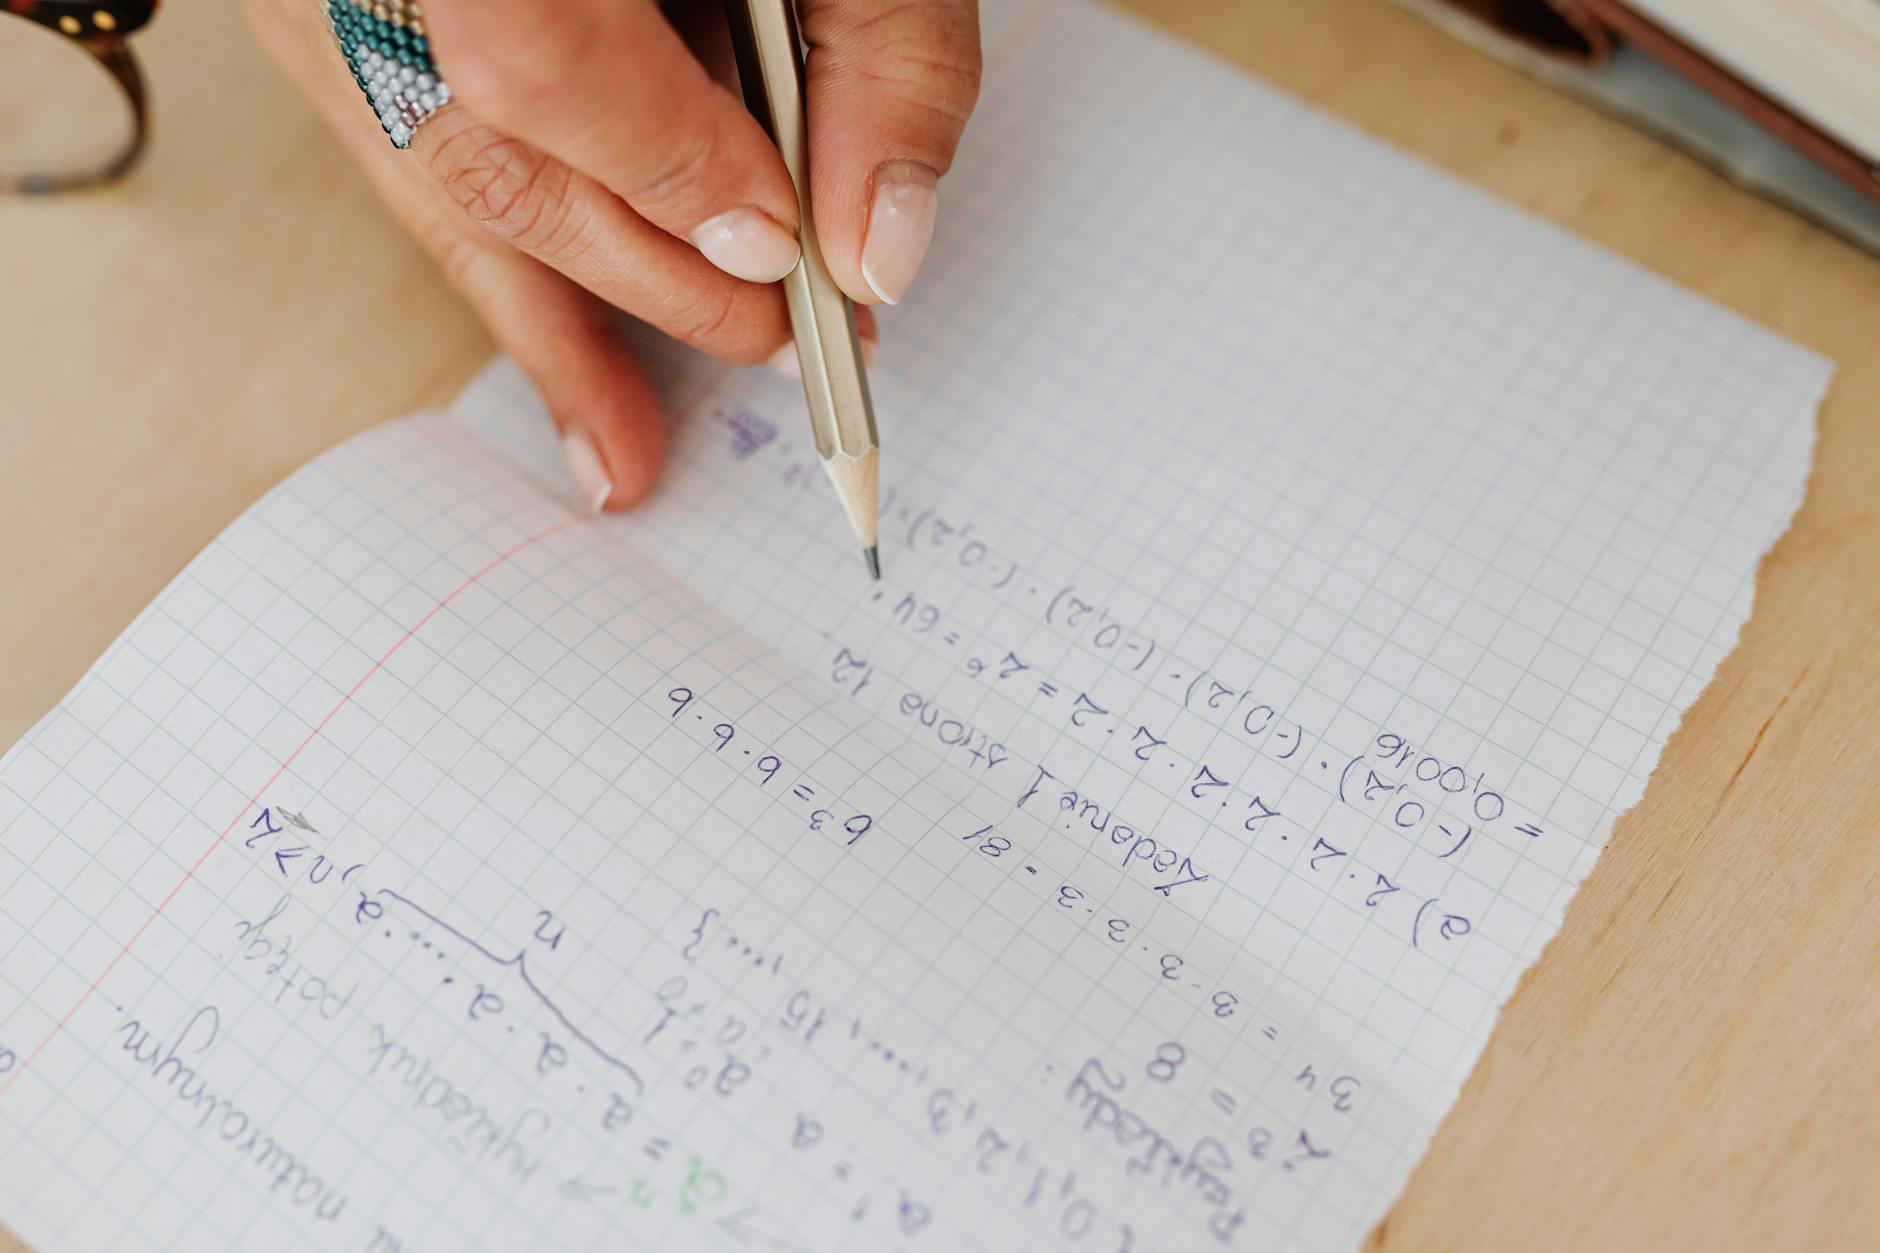 naturalnym.
→ wykładnik potęgi
aⁿ = a · a · a · .... · a, n ⩾ 2
n
a¹ = a a⁰ = 1
{0,1,2,3,...., 15,...}
Przykłady:
2³ = 8
3⁴ = 3·3·3·3 = 81 b³ = b·b·b
Zadanie 1 strona 12.
a) 2·2·2·2·2·2 = 2⁶ = 64
(-0,2)·(-0,2)·(-0,2)·(-0,2) =
= 0,0016